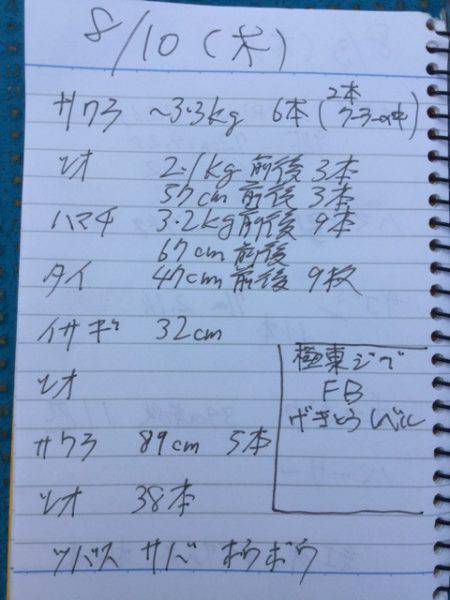 8/10(木)
サワラ ~3.3kg 6本(2本クーラーの中)
ツオ 2.1kg前後 3本
57cm前後 3本
ハマチ 3.2kg前後 9本
67cm前後
タイ 47cm前後 9枚
イサギ 32cm
ツオ
サワラ 89cm 5本
ツオ 38本
ツバス サバ ホウボウ
極東ジグ
FB
げきとうレベル